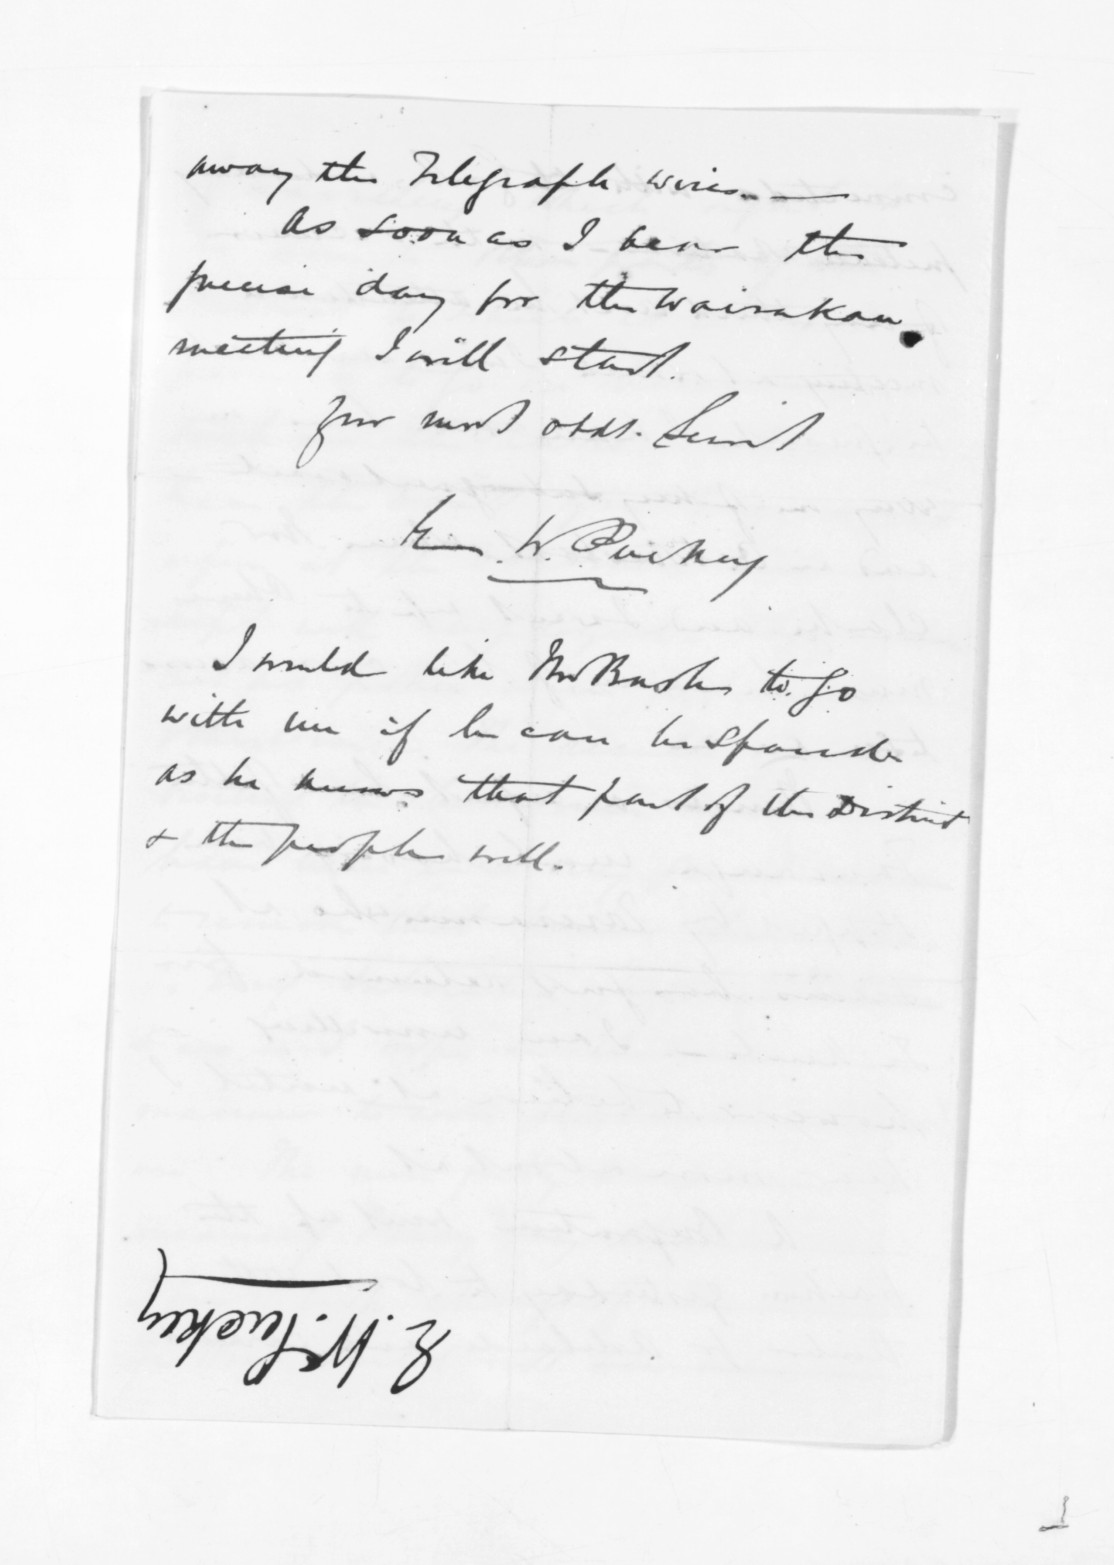 away the Telegraph wires. —
As soon as I hear the
precise day for the Wairakau
meeting I will start.
Your most obdt. Servt
E. W. Puckey
I would like Mr Bush to go
with me if he can be spared
as he knows that part of the District
& the people well.
E. W. Puckey